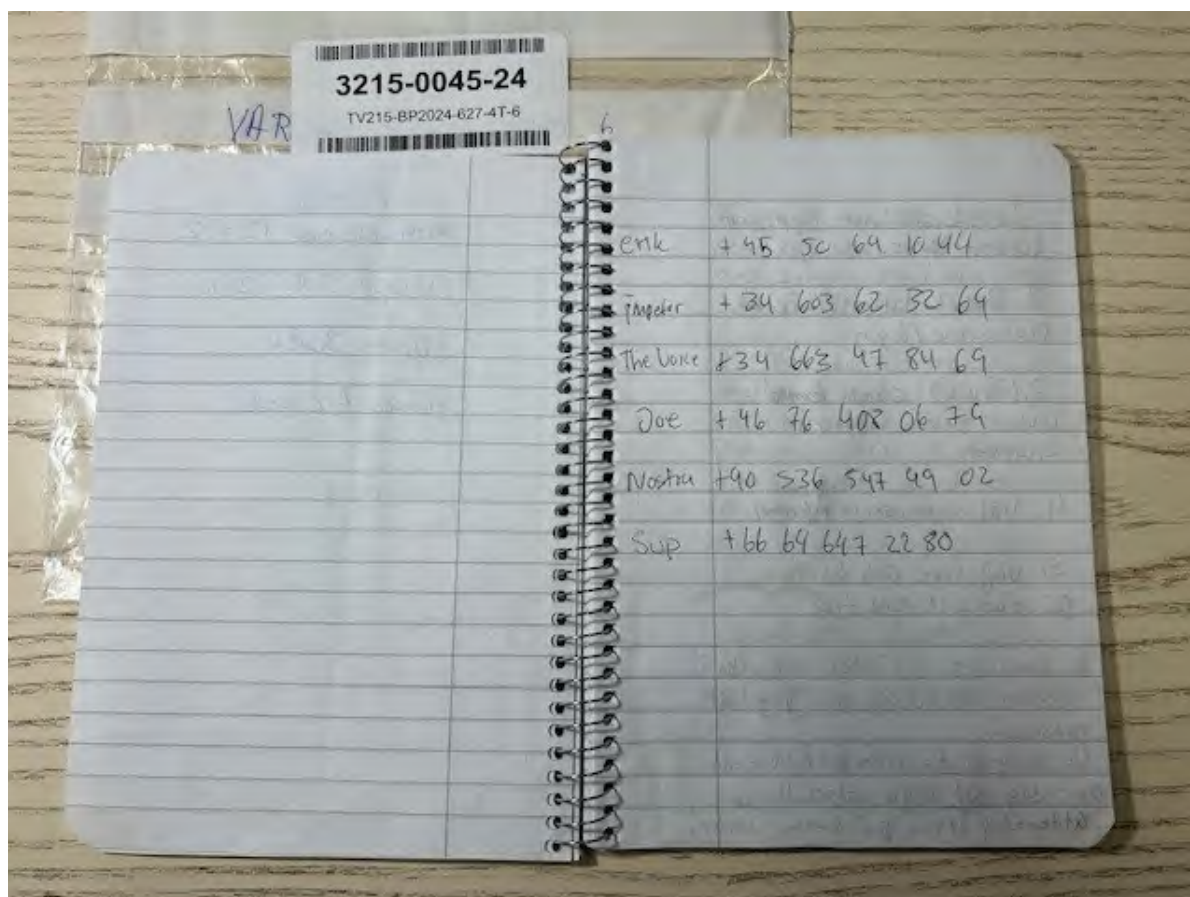 3215-0045-24
TV215-BP2024-627-4T-6
VAR
6
erik +45 50 69 10 44
+34 603 62 32 69
The Voice +34 663 47 84 69
Joe +46 76 408 06 79
Nostra +90 536 547 49 02
Sup +66 64 647 22 80